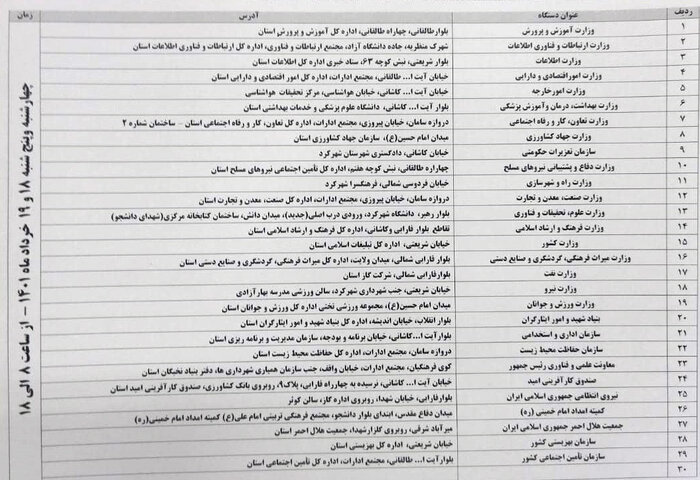 ردیف عنوان دستگاه آدرس زمان
۱ وزارت آموزش و پرورش بلوارطالقانی، چهاراه طالقانی، اداره کل آموزش و پرورش استان
۲ وزارت ارتباطات و فناوری اطلاعات شهرک منظریه، جاده دانشگاه آزاد، مجتمع ارتباطات و فناوری، اداره کل ارتباطات و فناوری اطلاعات استان
۳ وزارت اطلاعات بلوار شریعتی، نبش کوچه ۶۳، ستاد خبری اداره کل اطلاعات استان
۴ وزارت اموراقتصادی و دارایی خیابان آیت ا... طالقانی، مجتمع ادارات، اداره کل امور اقتصادی و دارایی استان
۵ وزارت امورخارجه خیابان آیت ا... کاشانی، خیابان هواشناسی، مرکز تحقیقات هواشناسی
۶ وزارت بهداشت، درمان وآموزش پزشکی بلوار آیت ا... کاشانی، دانشگاه علوم پزشکی و خدمات بهداشتی استان
۷ وزارت تعاون، کار و رفاه اجتماعی دروازه سامان، خیابان پیروزی، مجتمع ادارات، اداره کل تعاون، کار و رفاه اجتماعی استان - ساختمان شماره ۲
۸ وزارت جهاد کشاورزی میدان امام حسین(ع)، سازمان جهاد کشاورزی استان
۹ سازمان تعزیرات حکومتی خیابان کاشانی، دادگستری شهرستان شهرکرد
۱۰ وزارت دفاع و پشتیبانی نیروهای مسلح چهاراره طالقانی، نبش کوچه هفتم، اداره کل تأمین اجتماعی نیروهای مسلح استان
۱۱ وزارت راه و شهرسازی خیابان فردوسی شمالی، فرهنگسرا شهرکرد
۱۲ وزارت صنعت، معدن و تجارت دروازه سامان، خیابان پیروزی، مجتمع ادارات، اداره کل صنعت، معدن و تجارت استان
۱۳ وزارت علوم، تحقیقات و فناوری بلوار رهبر، دانشگاه شهرکرد، ورودی درب اصلی(جدید)، میدان دانش، ساختمان کتابخانه مرکزی(شهدای دانشجو)
۱۴ وزارت فرهنگ و ارشاد اسلامی تقاطع بلوار فارابی وکاشانی، اداره کل فرهنگ و ارشاد اسلامی استان
۱۵ وزارت کشور خیابان شریعتی، اداره کل تبلیغات اسلامی استان
۱۶ وزارت میراث فرهنگی، گردشگری و صنایع دستی بلوارفارابی شمالی، میدان ولایت، اداره کل میراث فرهنگی، گردشگری و صنایع دستی استان
۱۷ وزارت نفت بلوارفارابی شمالی، شرکت گاز استان
۱۸ وزارت نیرو خیابان شریعتی، جنب شهرداری شهرکرد، سالن ورزشی مدرسه بهارآزادی
۱۹ وزارت ورزش و جوانان میدان امام حسین(ع)، مجموعه ورزشی تختی اداره کل ورزش و جوانان استان
۲۰ بنیاد شهید و امور ایثارگران بلوار انقلاب، خیابان اندیشه، اداره کل بنیاد شهید و امور ایثارگران استان
۲۱ سازمان اداری و استخدامی بلوارآیت ا...کاشانی، خیابان برنامه و بودجه، سازمان مدیریت و برنامه ریزی استان
۲۲ سازمان حفاظت محیط زیست دروازه سامان، مجتمع ادارات، اداره کل حفاظت محیط زیست استان
۲۳ معاونت علمی و فناوری رئیس جمهور کوی فرهنگیان، مجتمع ادارات، خیابان واقف، جنب سازمان همیاری شهرداری ها، دفتر بنیاد نخبگان استان
۲۴ صندوق کارآفرینی امید خیابان آیت ا... کاشانی، نرسیده به چهارراه فارابی، پلاک۹، روبروی بانک کشاورزی، صندوق کارآفرینی امید استان
۲۵ نیروی انتظامی جمهوری اسلامی ایران بلوارفارابی، خیابان شهدا، روبروی اداره گاز، سالن کوثر
۲۶ کمیته امداد امام خمینی(ره) میدان دفاع مقدس، ابتدای بلوار دانشجو، مجتمع فرهنگی تربیتی امام علی(ع) کمیته امداد امام خمینی(ره)
۲۷ جمعیت هلال احمر جمهوری اسلامی ایران میرآباد شرقی، روبروی گلزارشهدا، جمعیت هلال احمر استان
۲۸ سازمان بهزیستی کشور خیابان شریعتی، اداره کل بهزیستی استان
۲۹ سازمان تأمین اجتماعی کشور بلوارآیت ا... طالقانی، مجتمع ادارات، اداره کل تأمین اجتماعی استان
۳۰
چهارشنبه وپنج شنبه ۱۸ و ۱۹ خرداد ماه ۱۴۰۱ - از ساعت ۸ الی ۱۸